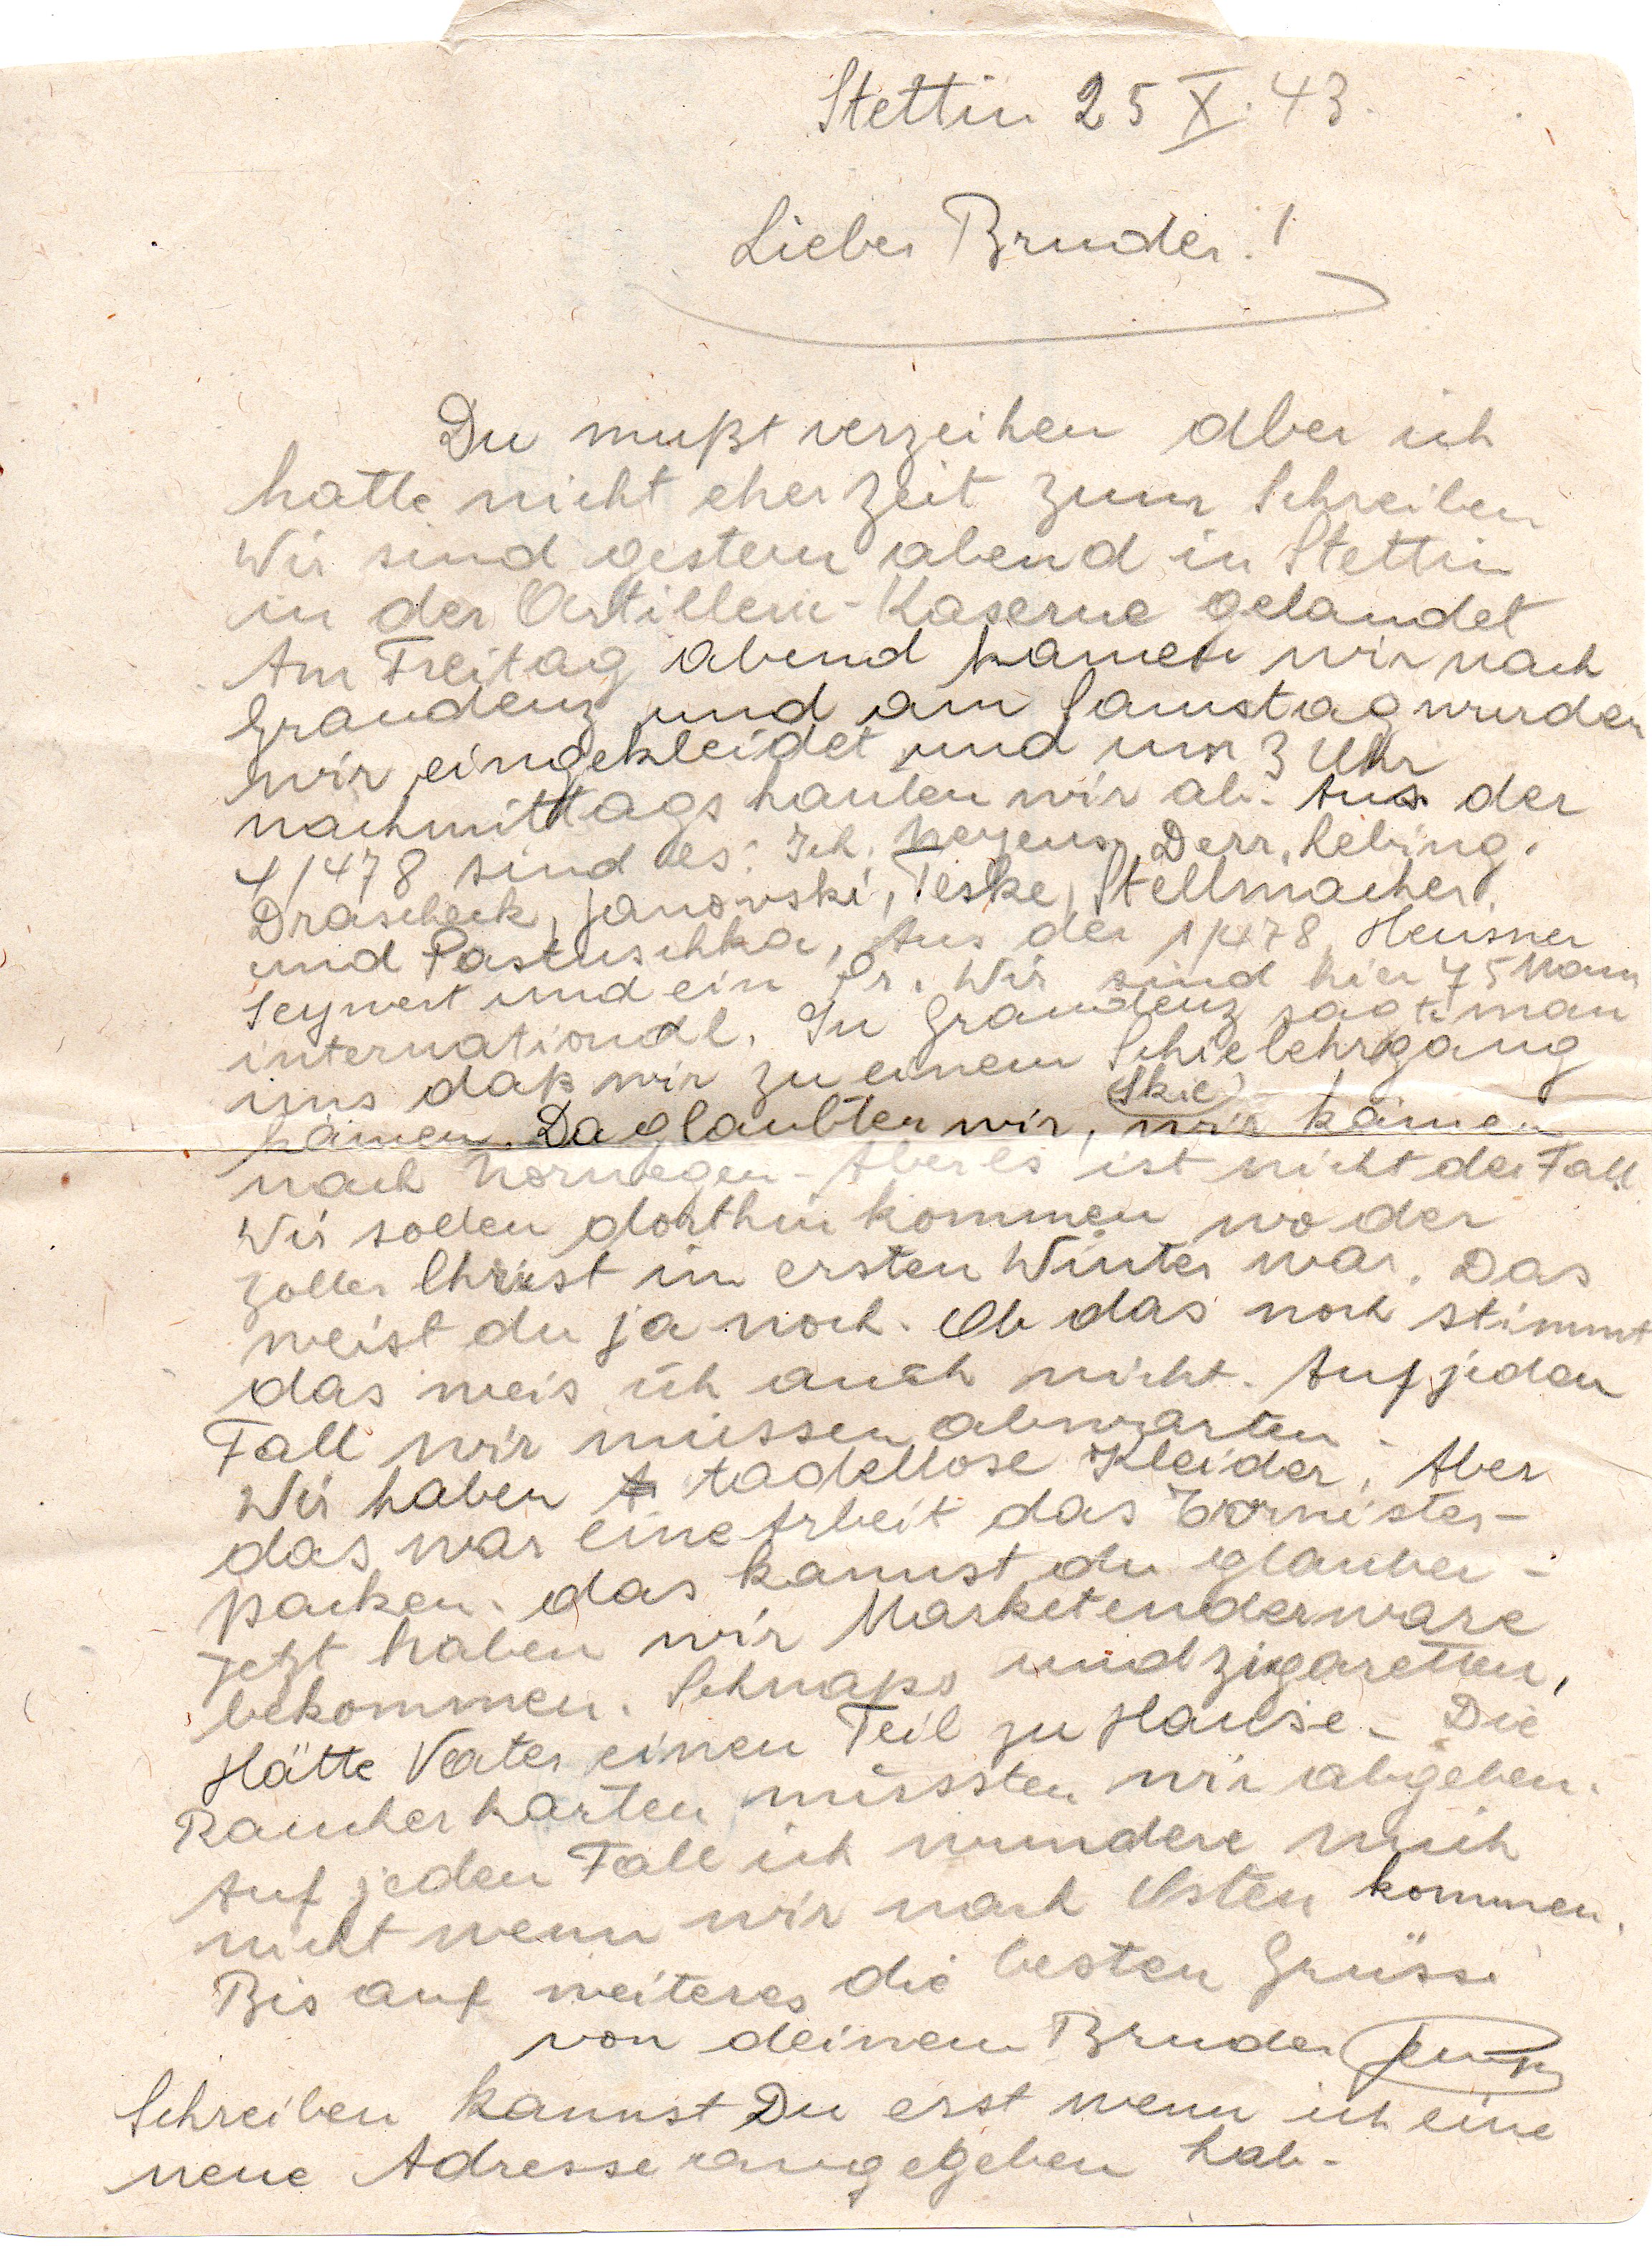 Stettin 25 X. 43.
Lieber Bruder!
Du mußt verzeihen aber ich
hatte nicht eher Zeit zum Schreiben
Wir sind gestern abend in Stettin
in der Artillerie-Kaserne gelandet
Am Freitag abend kamen wir nach
Graudenz und am Samstag wurden
wir eingekleidet und um 3 Uhr
nachmittags hauten wir ab. Aus der
4/478 sind es: Ich, Derr, Lebing.
Drascheck, Janovski, Teske, Stellmacher.
und Pastuschka, Aus der 1/478, Heusner
Seywert und ein Pr. Wir sind hier 75 Mann
international. In Graudenz sagte man
uns daß wir zu einem Schielehrgang
Skie
kämen. Da glaubten wir, wir kämen
nach Norwegen. Aber es ist nicht der Fall
Wir sollen dorthin kommen wo der
Zoller Christ im ersten Winter war. Das
weist du ja noch. Ob das noch stimmt
das weis ich auch nicht. Auf jeden
Fall wir müssen abwarten.
Wir haben tadellose Kleider. Aber
das war eine Arbeit das Tornister-
packen. das kannst du glauben -
Jetzt haben wir Marketenderware
bekommen. Schnaps und Zigaretten,
Hätte Vater einen Teil zu Hause. Die
Raucherkarten müssten wir abgeben.
Auf jeden Fall ich wundere mich
nicht wenn wir nach Osten kommen.
Bis auf weiteres die besten Grüsse
von deinem Bruder
Schreiben kannst Du erst wenn ich eine
neue Adresse angegeben hab.